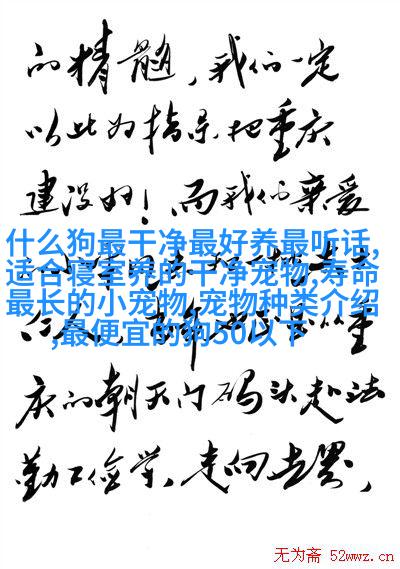 的精髓，我们一定
以此为指导把重庆
建设好！而我们亲爱
什么狗最干净最好养最听话,
适合寝室养的干净宠物,寿命
最长的小宠物,宠物种类介绍
,最便宜的狗50以下
庆的朝天门码头赴法
勤工俭学，走向世界，
无为斋 52wwz.cn